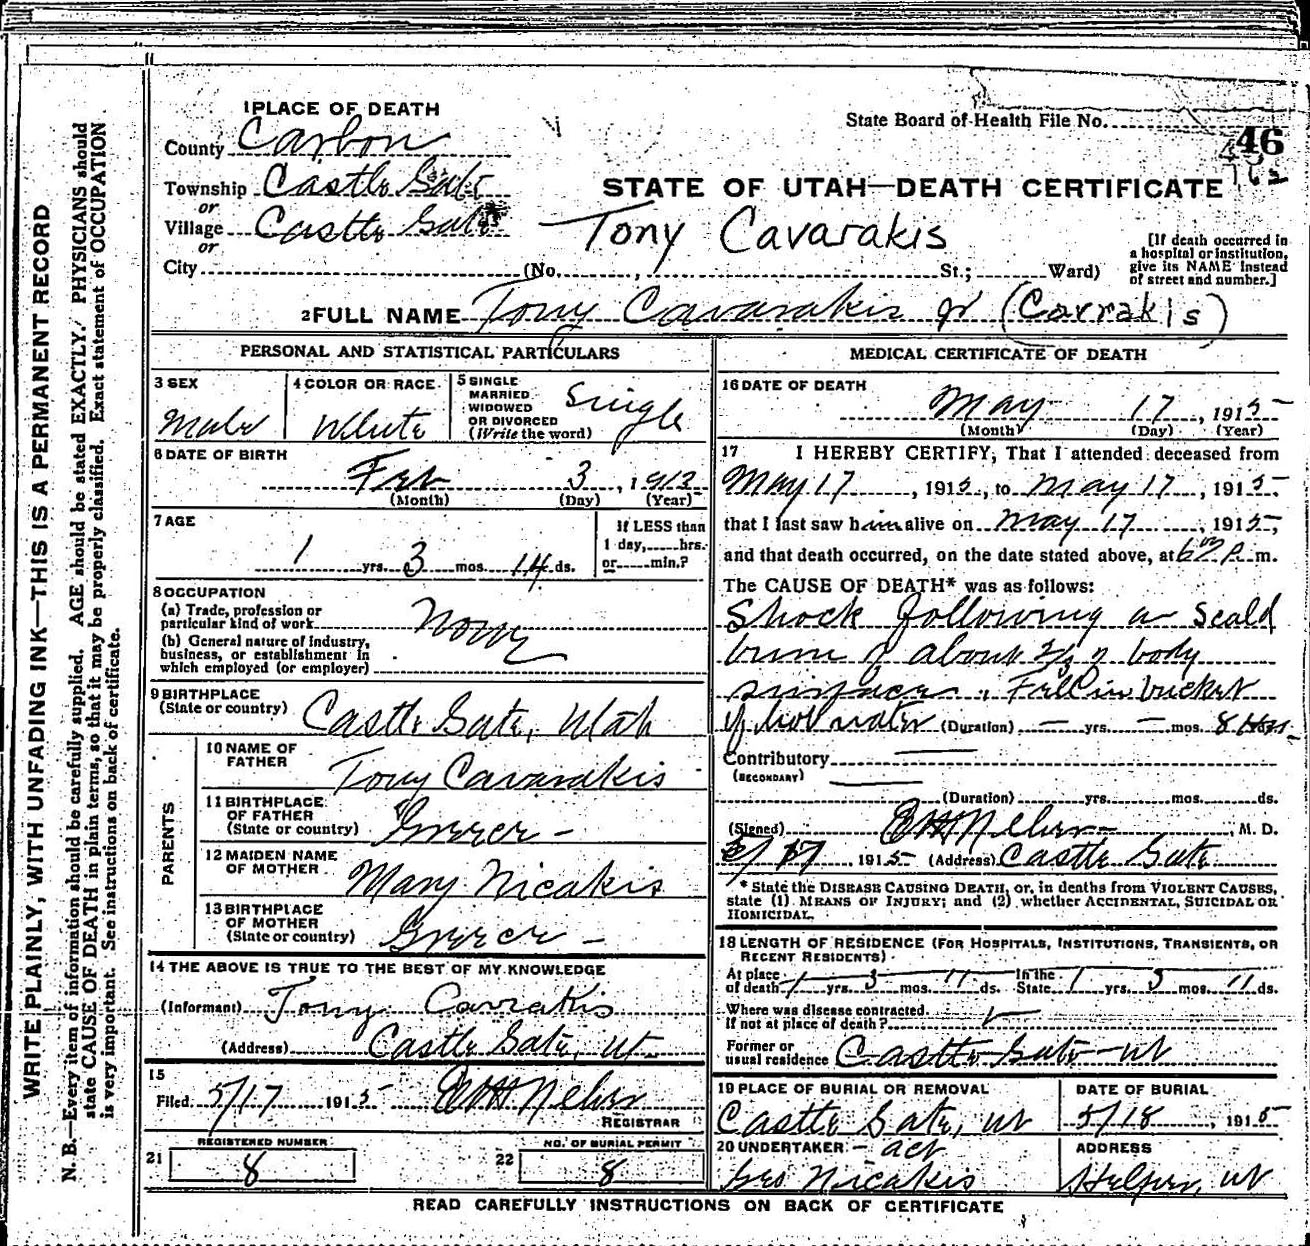 WRITE PLAINLY, WITH UNFADING INK—THIS IS A PERMANENT RECORD
N. B.—Every item of information should be carefully supplied. AGE should be stated EXACTLY. PHYSICIANS should
state CAUSE OF DEATH in plain terms, so that it may be properly classified. Exact statement of OCCUPATION
is very important. See instructions on back of certificate.
1 PLACE OF DEATH
State Board of Health File No.
46
County Carbon
Township Castle Gate
STATE OF UTAH—DEATH CERTIFICATE
or
Village Castle Gate
Tony Cavarakis
or
City (No. , St.; Ward)
[If death occurred in
a hospital or institution,
give its NAME instead
of street and number.]
2 FULL NAME Tony Cavarakis Jr (Cavrakis)
PERSONAL AND STATISTICAL PARTICULARS
3 SEX
Male
4 COLOR OR RACE
White
5 SINGLE
MARRIED
WIDOWED
OR DIVORCED
(Write the word)
Single
6 DATE OF BIRTH
Feb 3, 1913
(Month) (Day) (Year)
7 AGE
1 yrs. 3 mos. 14 ds.
If LESS than
1 day, hrs.
or min.?
8 OCCUPATION
(a) Trade, profession or
particular kind of work
None
(b) General nature of industry,
business, or establishment in
which employed (or employer)
9 BIRTHPLACE
(State or country) Castle Gate, Utah
PARENTS
10 NAME OF
FATHER
Tony Cavarakis
11 BIRTHPLACE
OF FATHER
(State or country) Greece -
12 MAIDEN NAME
OF MOTHER
Mary Nicakis
13 BIRTHPLACE
OF MOTHER
(State or country) Greece -
14 THE ABOVE IS TRUE TO THE BEST OF MY KNOWLEDGE
(Informant) Tony Cavrakis
(Address) Castle Gate, Ut
15
Filed 5/17 1915
REGISTRAR
21 REGISTERED NUMBER
8
22 NO. OF BURIAL PERMIT
8
MEDICAL CERTIFICATE OF DEATH
16 DATE OF DEATH
May 17, 1915
(Month) (Day) (Year)
17 I HEREBY CERTIFY, That I attended deceased from
May 17, 1915, to May 17, 1915
that I last saw him alive on May 17, 1915,
and that death occurred, on the date stated above, at P. m.
The CAUSE OF DEATH* was as follows:
Shock following a scald
burn of about 2/3 of body
surfaces. Fell in bucket
of hot water (Duration) — yrs. — mos. 8 Hrs.
Contributory
(SECONDARY)
(Duration) yrs. mos. ds.
(Signed) , M. D.
5/17 1915 (Address) Castle Gate
* State the DISEASE CAUSING DEATH, or, in deaths from VIOLENT CAUSES,
state (1) MEANS OF INJURY; and (2) whether ACCIDENTAL, SUICIDAL OR
HOMICIDAL.
18 LENGTH OF RESIDENCE (FOR HOSPITALS, INSTITUTIONS, TRANSIENTS, OR
RECENT RESIDENTS)
At place
of death 1 yrs. 3 mos. 11 ds. In the
State 1 yrs. 3 mos. 11 ds.
Where was disease contracted.
If not at place of death?
Former or
usual residence Castle Gate - Ut
19 PLACE OF BURIAL OR REMOVAL
Castle Gate, Ut
DATE OF BURIAL
5/18, 1915
20 UNDERTAKER - act
Geo Nicakis
ADDRESS
Helper, Ut
READ CAREFULLY INSTRUCTIONS ON BACK OF CERTIFICATE